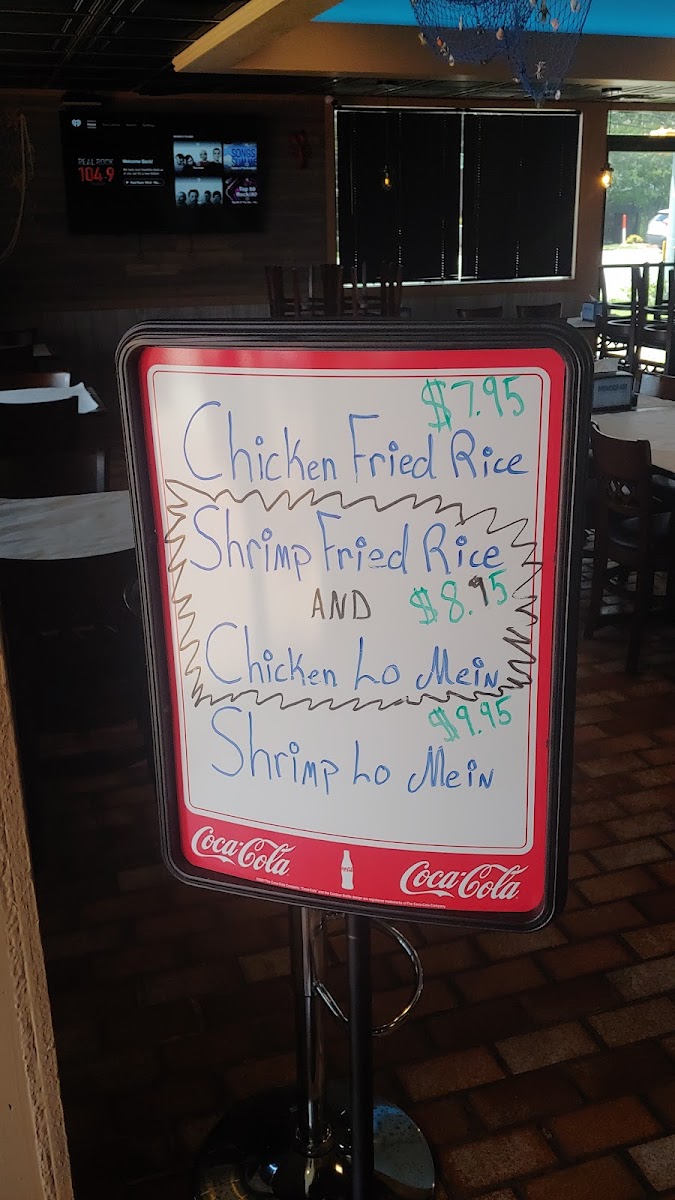 REAL ROCK
104.9
Welcome Back!
SONGS
$7.95
Chicken Fried Rice
Shrimp Fried Rice
AND $8.95
Chicken Lo Mein
$9.95
Shrimp Lo Mein
Coca-Cola
Coca-Cola